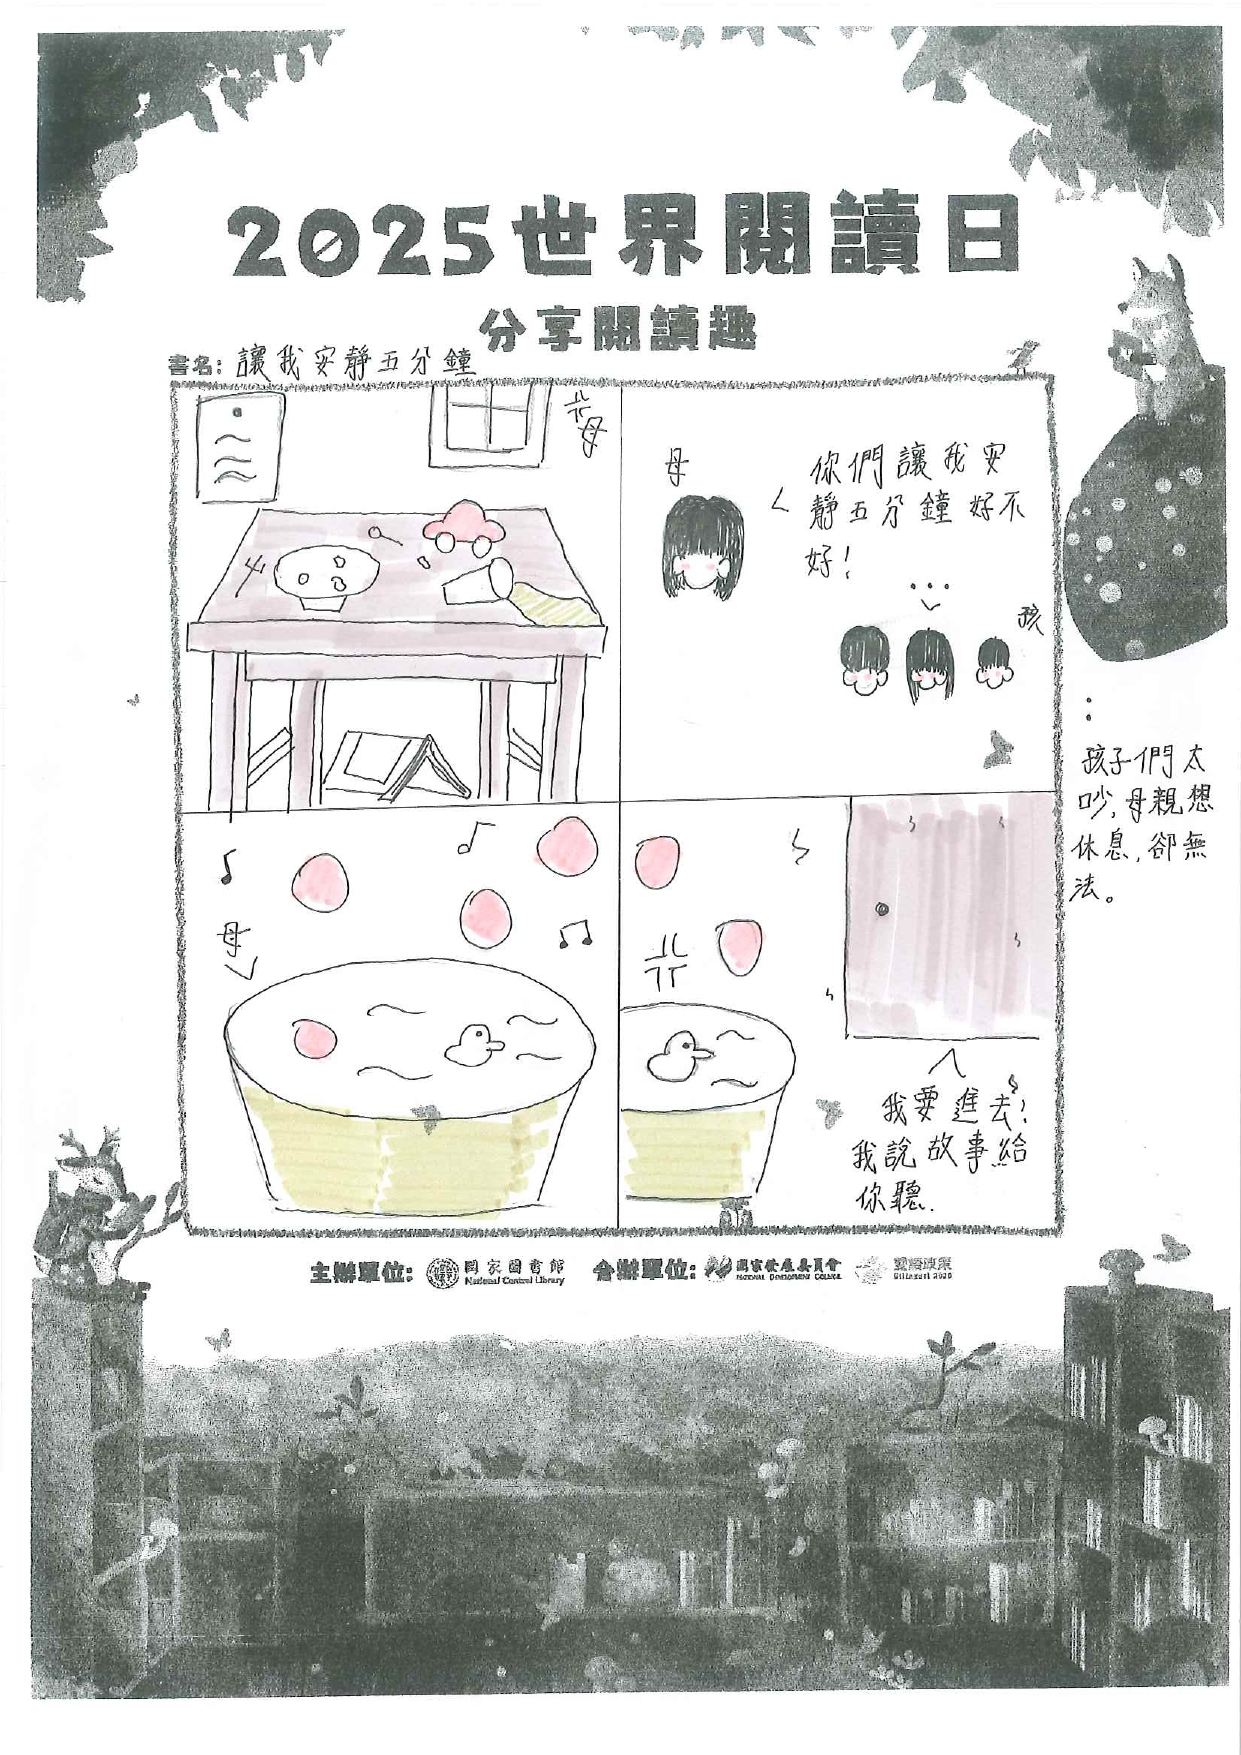 2025世界閱讀日
分享閱讀趣
書名: 讓我安靜五分鐘
母
母
你們讓我安
靜五分鐘好不
好!
...
孩
:
孩子們太
吵,母親想
休息,卻無
法。
母
我要進去!
我說故事給
你聽.
主辦單位: 國家圖書館 合辦單位: 國家發展委員會
National Central Library NATIONAL DEVELOPMENT COUNCIL